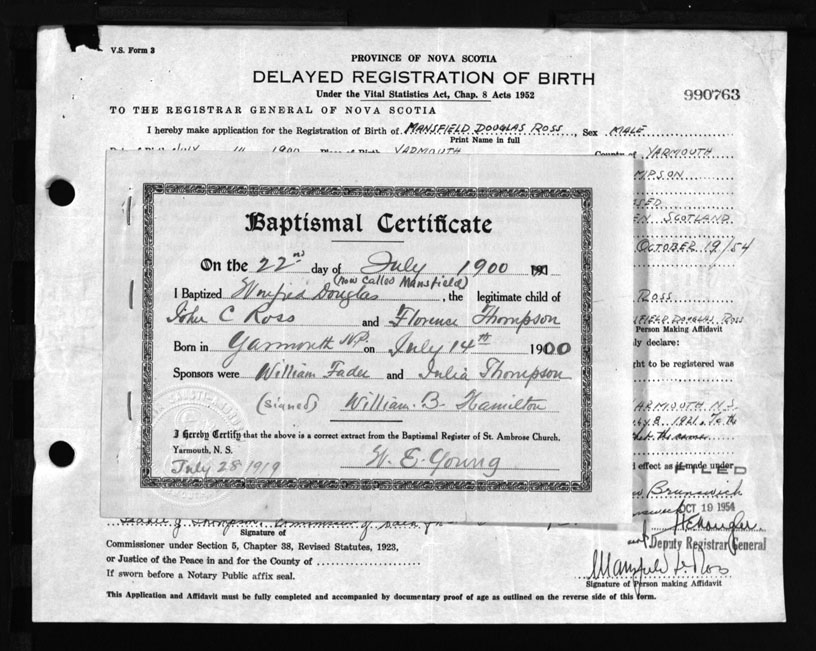 V.S. Form 3
PROVINCE OF NOVA SCOTIA
DELAYED REGISTRATION OF BIRTH
Under the Vital Statistics Act, Chap. 8 Acts 1952
990763
TO THE REGISTRAR GENERAL OF NOVA SCOTIA
I hereby make application for the Registration of Birth of MANSFIELD DOUGLAS ROSS, Sex MALE
Print Name in full
JULY 14 1900 YARMOUTH County of YARMOUTH
SCOTLAND
OCTOBER 19/54
ROSS
DOUGLAS ROSS
Person Making Affidavit
declare:
ght to be registered was
YARMOUTH N.S.
1921. To the
the same
effect as if made under
Brunswick
FILED
OCT 19 1954
Deputy Registrar General
Baptismal Certificate
On the 22nd day of July 1900
(now called Mansfield)
I Baptized Winfred Douglas, the legitimate child of
John C Ross and Florence Thompson
Born in Yarmouth N.S. on July 14th 1900
Sponsors were William Fader and Julia Thompson
(signed) William. B. Hamilton
I Hereby Certify that the above is a correct extract from the Baptismal Register of St. Ambrose Church.
Yarmouth, N. S.
July 28 1919 W. E. Young
Signature of
Commissioner under Section 5, Chapter 38, Revised Statutes, 1923,
or Justice of the Peace in and for the County of
If sworn before a Notary Public affix seal.
Mansfield D. Ross
Signature of Person making Affidavit
This Application and Affidavit must be fully completed and accompanied by documentary proof of age as outlined on the reverse side of this form.